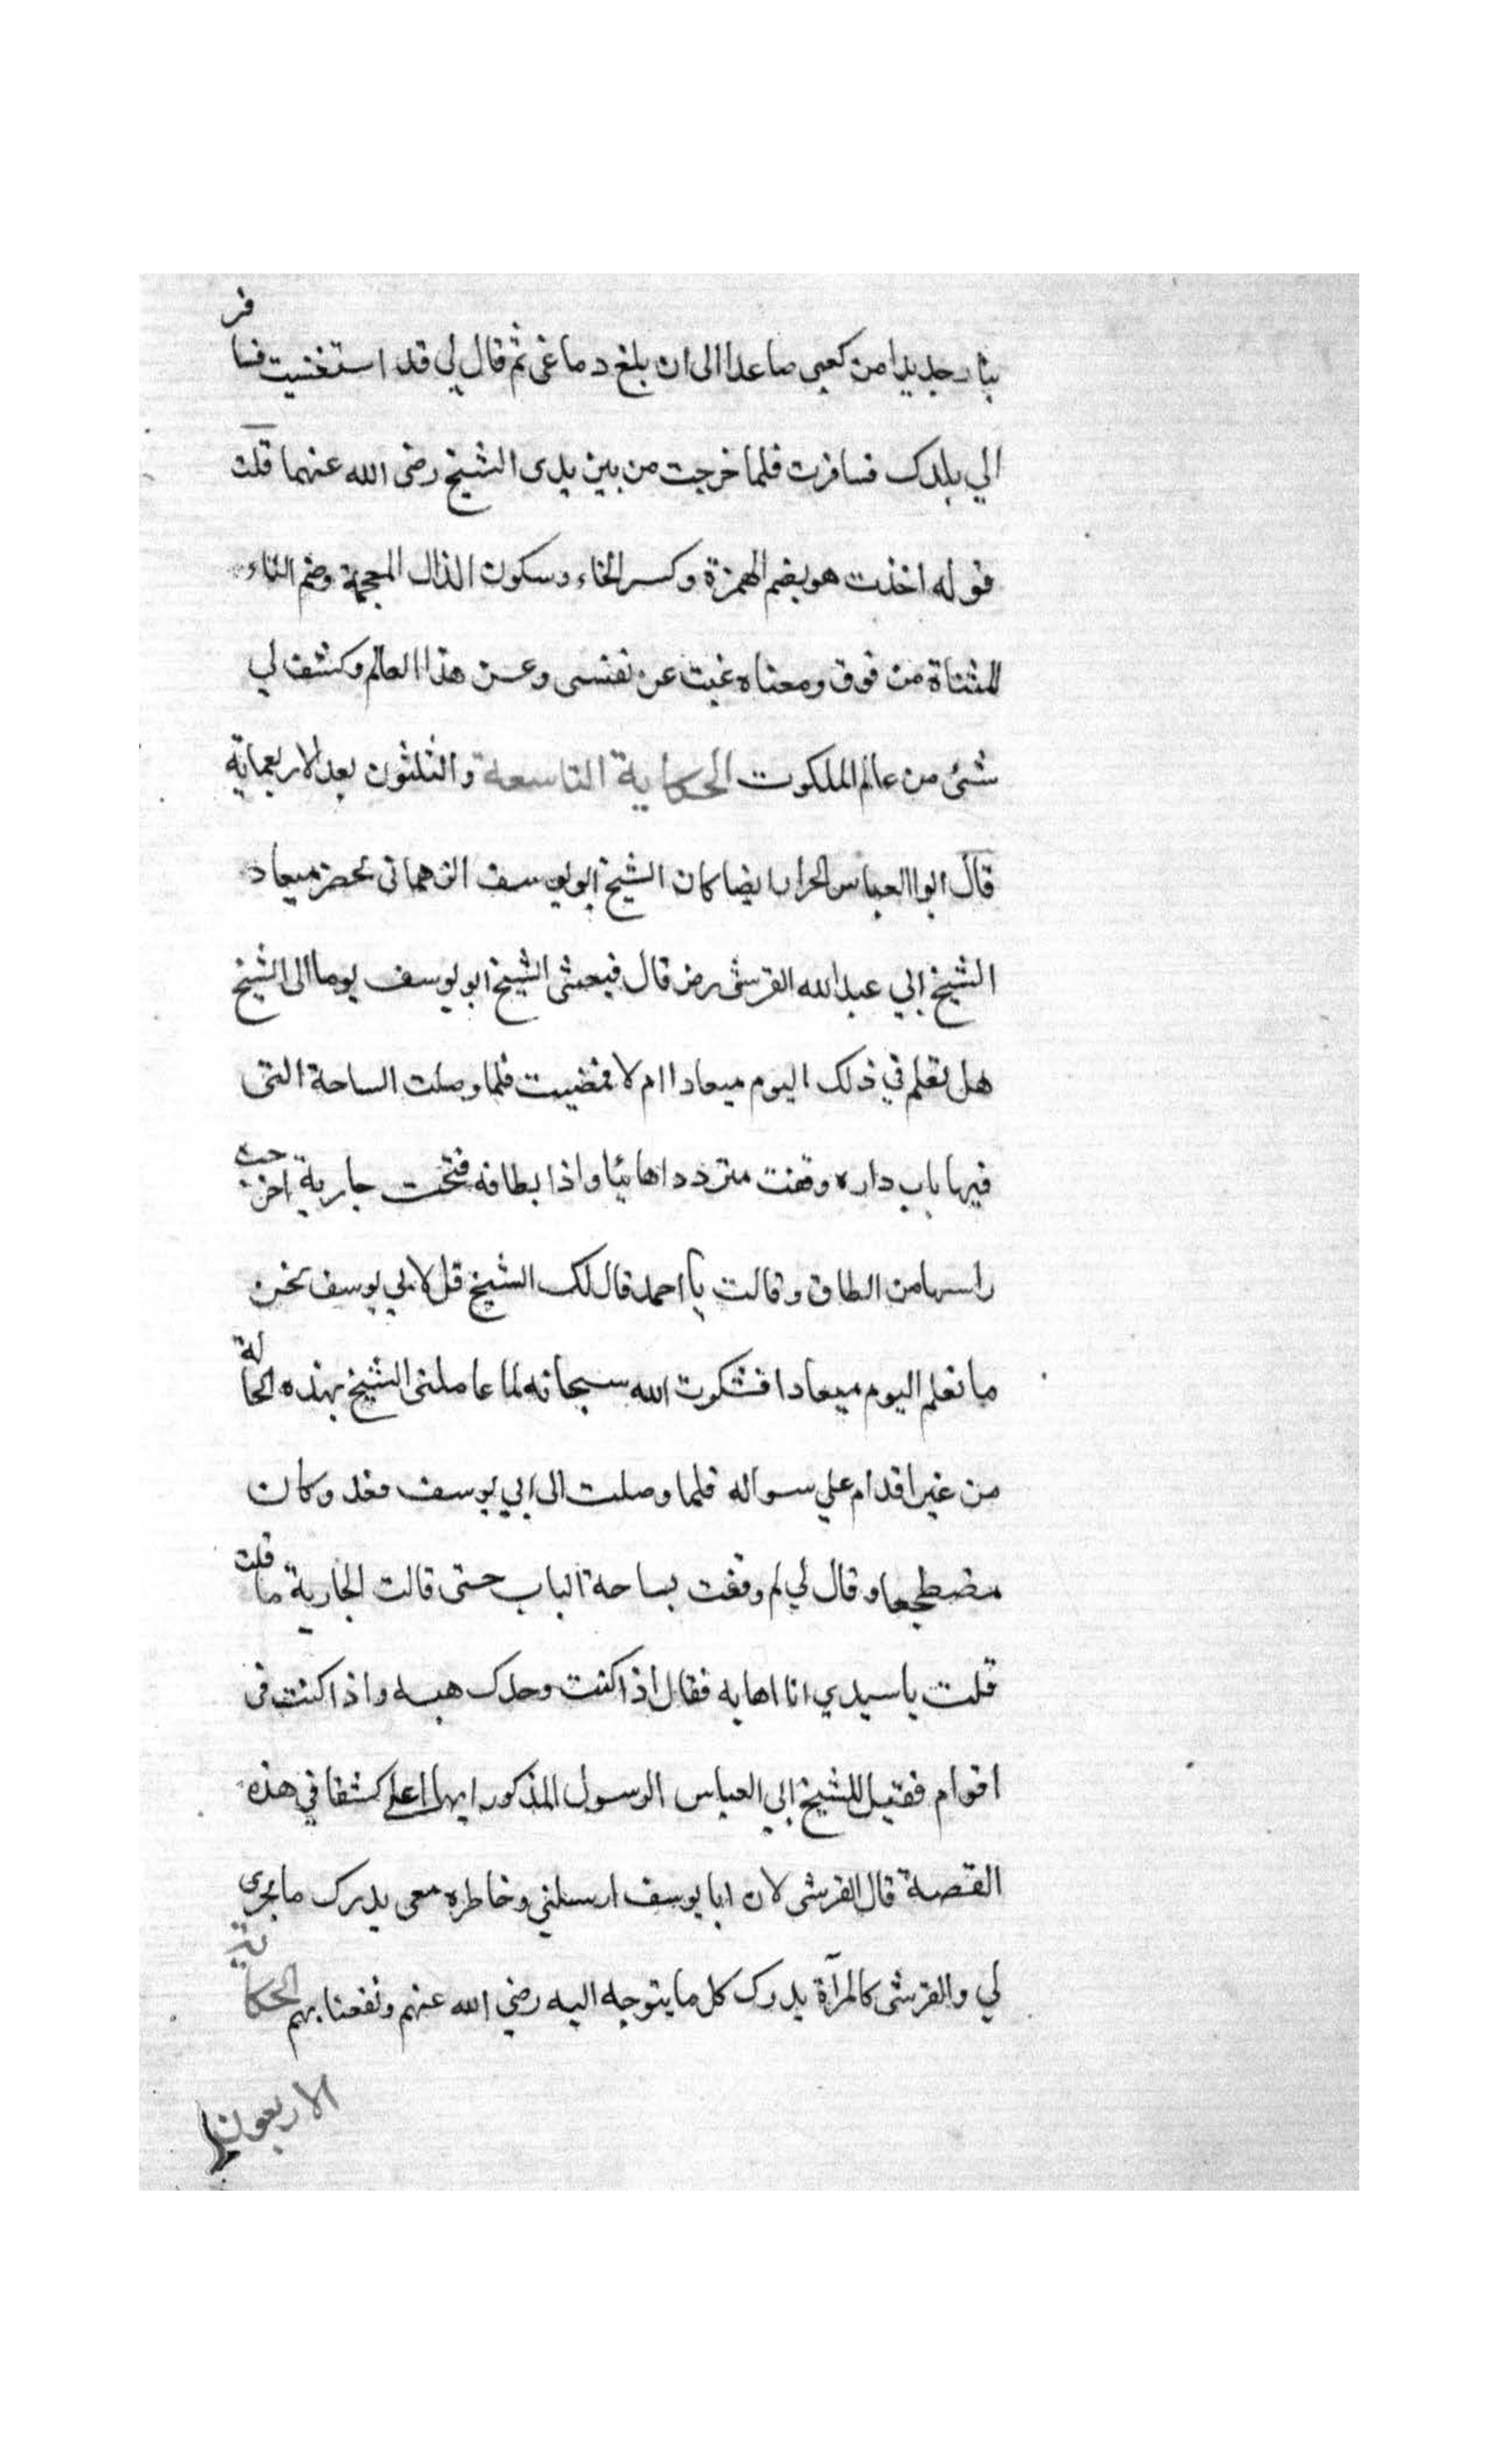 جديدا من كعبي صاعدا الى ان بلغ دماغى ثم قال لي قد استغنيت فسافر
الي بلدك فسافرت فلما خرجت من بين يدى الشيخ رضى الله عنهما قلت
قوله اخذت هو بضم الهمزة وكسر الخاء وسكون الذال المعجمة وضم التاء
المثناة من فوق ومعناه غبت عن نفسى وعن هذا العالم وكشف لي
شئ من عالم الملكوت الحكاية التاسعة والثلثون بعد الاربعماية
قال ابو العباس الحرار ايضا كان الشيخ ابو يوسف الدهمانى يحضر ميعاد
الشيخ ابي عبد الله القرشى رض قال فبعثنى الشيخ ابو يوسف يوما الى الشيخ
هل تعلم في ذلك اليوم ميعادا ام لا فمضيت فلما وصلت الساحة التى
فيها باب داره وقفت مترددا هائبا واذا بطاقه فتحت جارية اخرجت
راسها من الطاق وقالت يا احمد قال لك الشيخ قل لابي يوسف نحن
ما نعلم اليوم ميعادا فشكرت الله سبحانه لما عاملنى الشيخ بهذه الحالة
من غير اقدام علي سواله فلما وصلت الى ابي يوسف فقد وكان
مضطجعا وقال لي لم وقفت بساحة الباب حتى قالت الجارية ما قلت
قلت يا سيدي انا اهابه فقال اذا كنت وحدك هبه واذا كنت فى
اقوام فقيل للشيخ ابي العباس الرسول المذكور ايهما اعلى كشفا في هذه
القصة قال القرشى لان ابا يوسف ارسلني وخاطره معى يدرك ما يجرى
لي والقرشى كالمرآة يدرك كل ما يتوجه اليه رضي الله عنهم ونفعنا بهم الحكاية
الاربعون